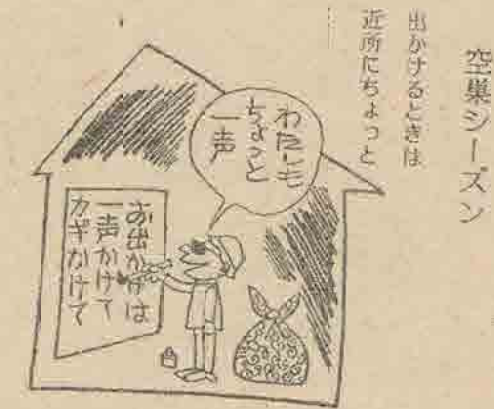 空巣シーズン
出かけるときは
近所にちょっと
わたしも
ちょっと
一声
お出かけは
一声かけて
カギかけて